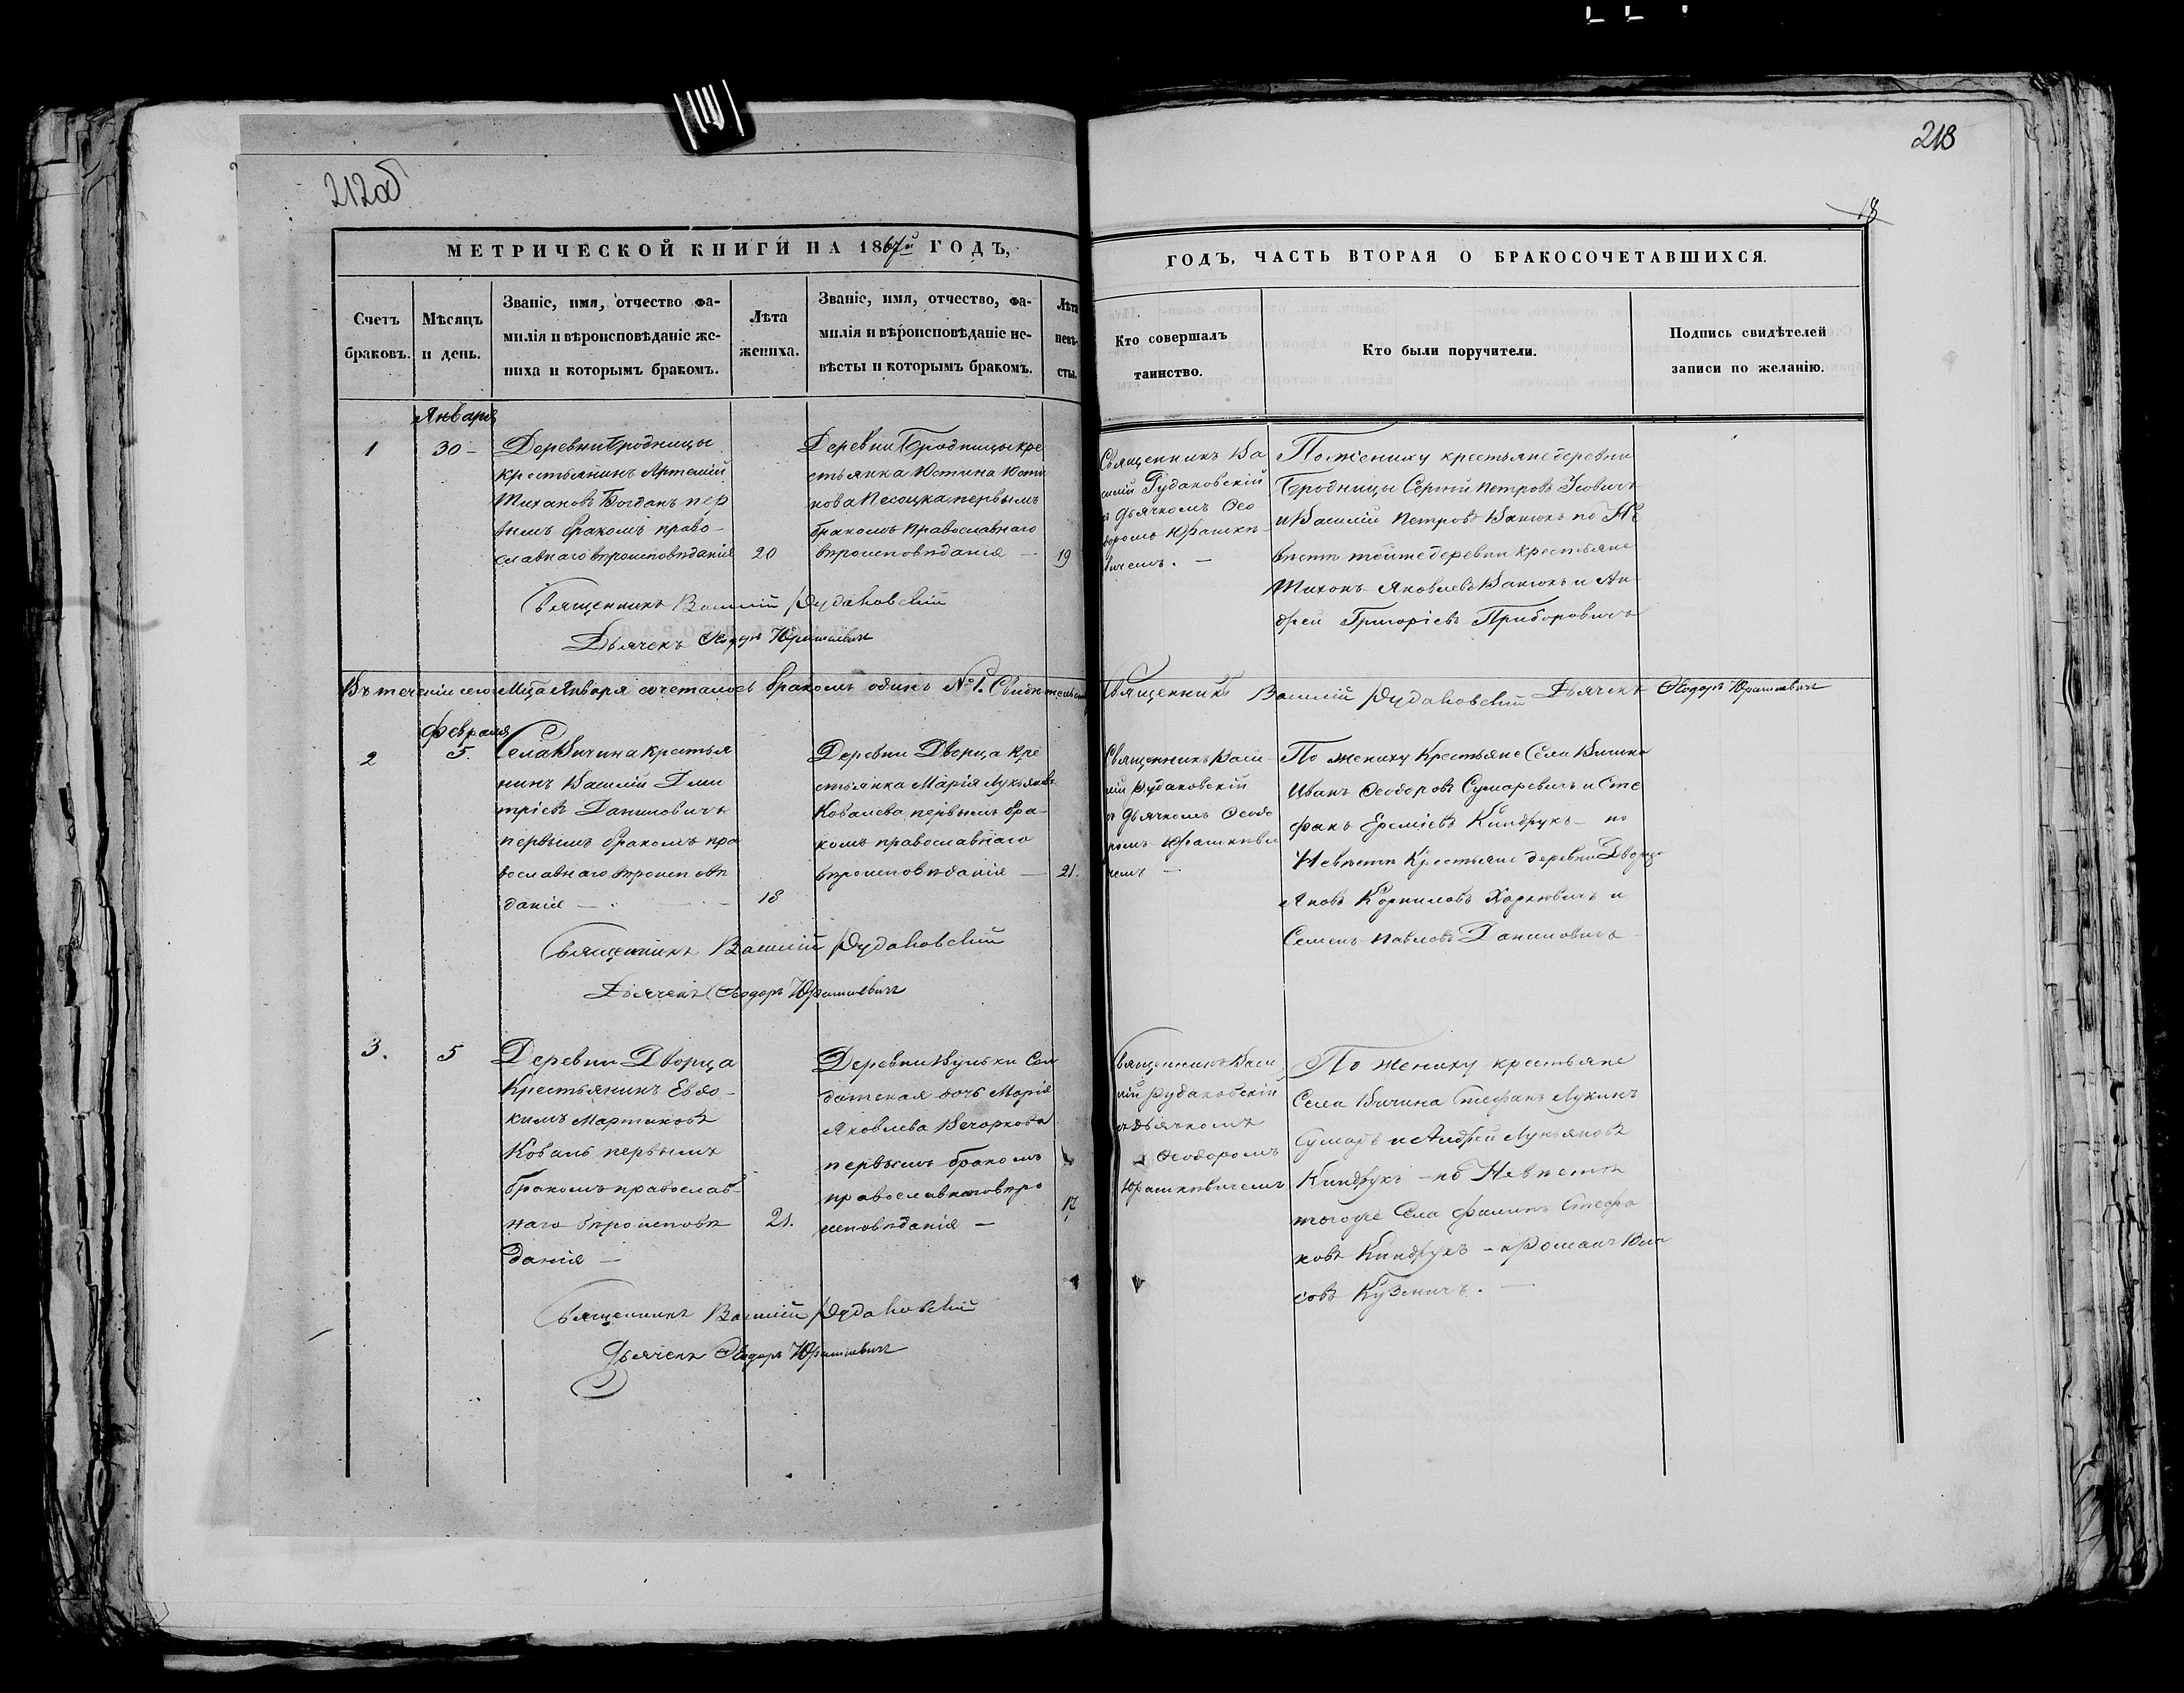 212об
213
18
МЕТРИЧЕСКОЙ КНИГИ НА 1867й ГОДЪ,
Счетъ браковъ.
Мѣсяцъ и день.
Званіе, имя, отчество фа-
милія и вѣроисповѣданіе же-
ниха и которымъ бракомъ.
Лѣта жениха.
Званіе, имя, отчество, фа-
милія и вѣроисповѣданіе не-
вѣсты и которымъ бракомъ.
Лѣта невѣ-
сты.
Января
1
30 –
Деревни Бродницы
крестьянинъ Артемій
Тихановъ Богданъ пер
вымъ бракомъ право-
славнаго вѣроисповѣданія
20
Деревни Бродницы кре
стьянка Юстина Юсти
нова Песоцка первымъ
бракомъ Православнаго
вѣроисповѣданія —
19
Священникъ Василій Рудаковскій
Дьячекъ Ѳеодоръ Юрашкевичъ
Въ теченіи сего Мца Января сочеталось бракомъ одинъ №1.
Февраля
2
5.
Села Вичина Крестья
нинъ Василій Дми
тріевъ Даниловичъ
первымъ бракомъ пра
вославнаго вѣроисповѣ
данія —
18
Деревни Дворца Кре
стьянка Марія Лукьянова
Ковалева первымъ бра-
комъ православнаго
вѣроисповѣданія —
21.
Священникъ Василій Рудаковскій
Дьячекъ Ѳеодоръ Юрашкевичъ
3.
5
Деревни Дворца
Крестьянинъ Евдо-
кимъ Мартиновъ
Коваль первымъ
бракомъ православ-
наго вѣроисповѣ
данія —
21.
Деревни Вульки Сол
датская дочь Марія
Яковлева
первымъ бракомъ
православнаго вѣро
исповѣданія —
17
Священникъ Василій Рудаковскій
Дьячекъ Ѳеодоръ Юрашкевичъ
ГОДЪ, ЧАСТЬ ВТОРАЯ О БРАКОСОЧЕТАВШИХСЯ.
Кто совершалъ
таинство.
Кто были поручители.
Подпись свидѣтелей
записи по желанію.
Священникъ Ва
силій Рудаковскій
съ дьячкомъ Ѳео
доромъ Юрашке-
вичемъ. —
По жениху крестьяне деревни
Бродницы Сергій Петровъ
и Василій Петровъ по Не
вѣстѣ тойже деревни крестьяне
Тихонъ Яковлевъ и Ан
дрей Григоріевъ Приборовичъ
Священникъ Василій Рудаковскій Дьячекъ Ѳеодоръ Юрашкевичъ
Священникъ Васи-
лій Рудаковскій
съ дьячкомъ Ѳеодо
ромъ Юрашкеви
чемъ —
По жениху Крестьяне Села Вичина
Иванъ Ѳеодоровъ Сумаревичъ и Сте
фанъ Еремѣевъ Киндрукъ — по
Невѣстѣ Крестьяне деревни Дворца
Яковъ Корниловъ Харкевичъ и
Семенъ Павловъ Даниловичъ
Священникъ Васи
лій Рудаковскій
съ дьячкомъ
Ѳеодоромъ
Юрашкевичемъ
По жениху крестьяне
Села Вичина Стефанъ Лукинъ
Сумаръ и Андрей Лукьяновъ
Киндрукъ — по Невѣстѣ
тогоже Села Стефа
новъ Киндрукъ — и Романъ
совъ Кузмичъ. —